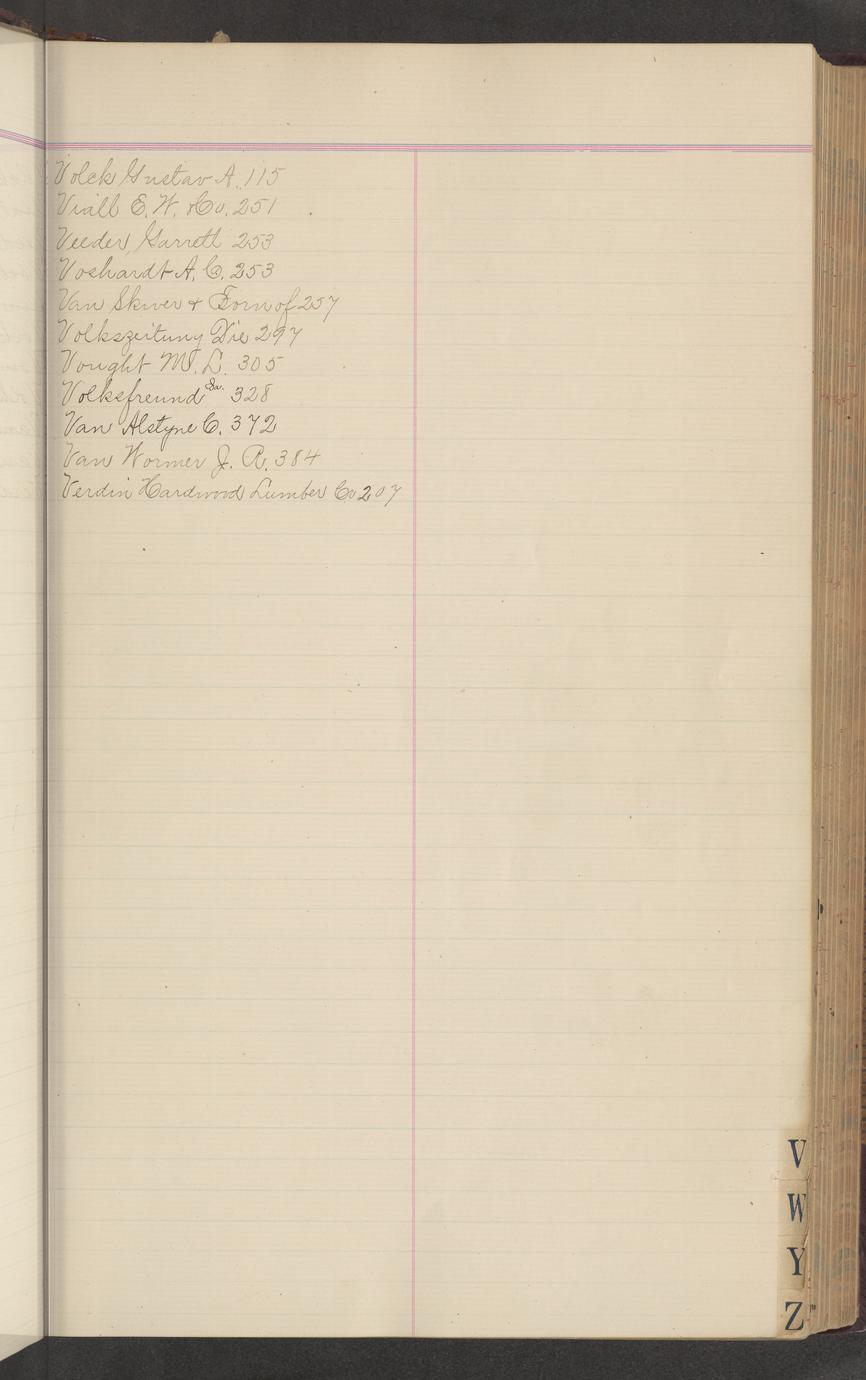 Volck Gustav A. 115
Viall E. W. & Co. 251
Veeder, Garrett 253
Voshardt A. C. 253
Van Skiver & Fornof 257
Volkszeitung Die 297
Vought M. L. 305
Volksfreund 328
Van Alstyne C. 372
Van Wormer J. R. 384
Verdin Hardwood Lumber Co 207
V
W
Y
Z